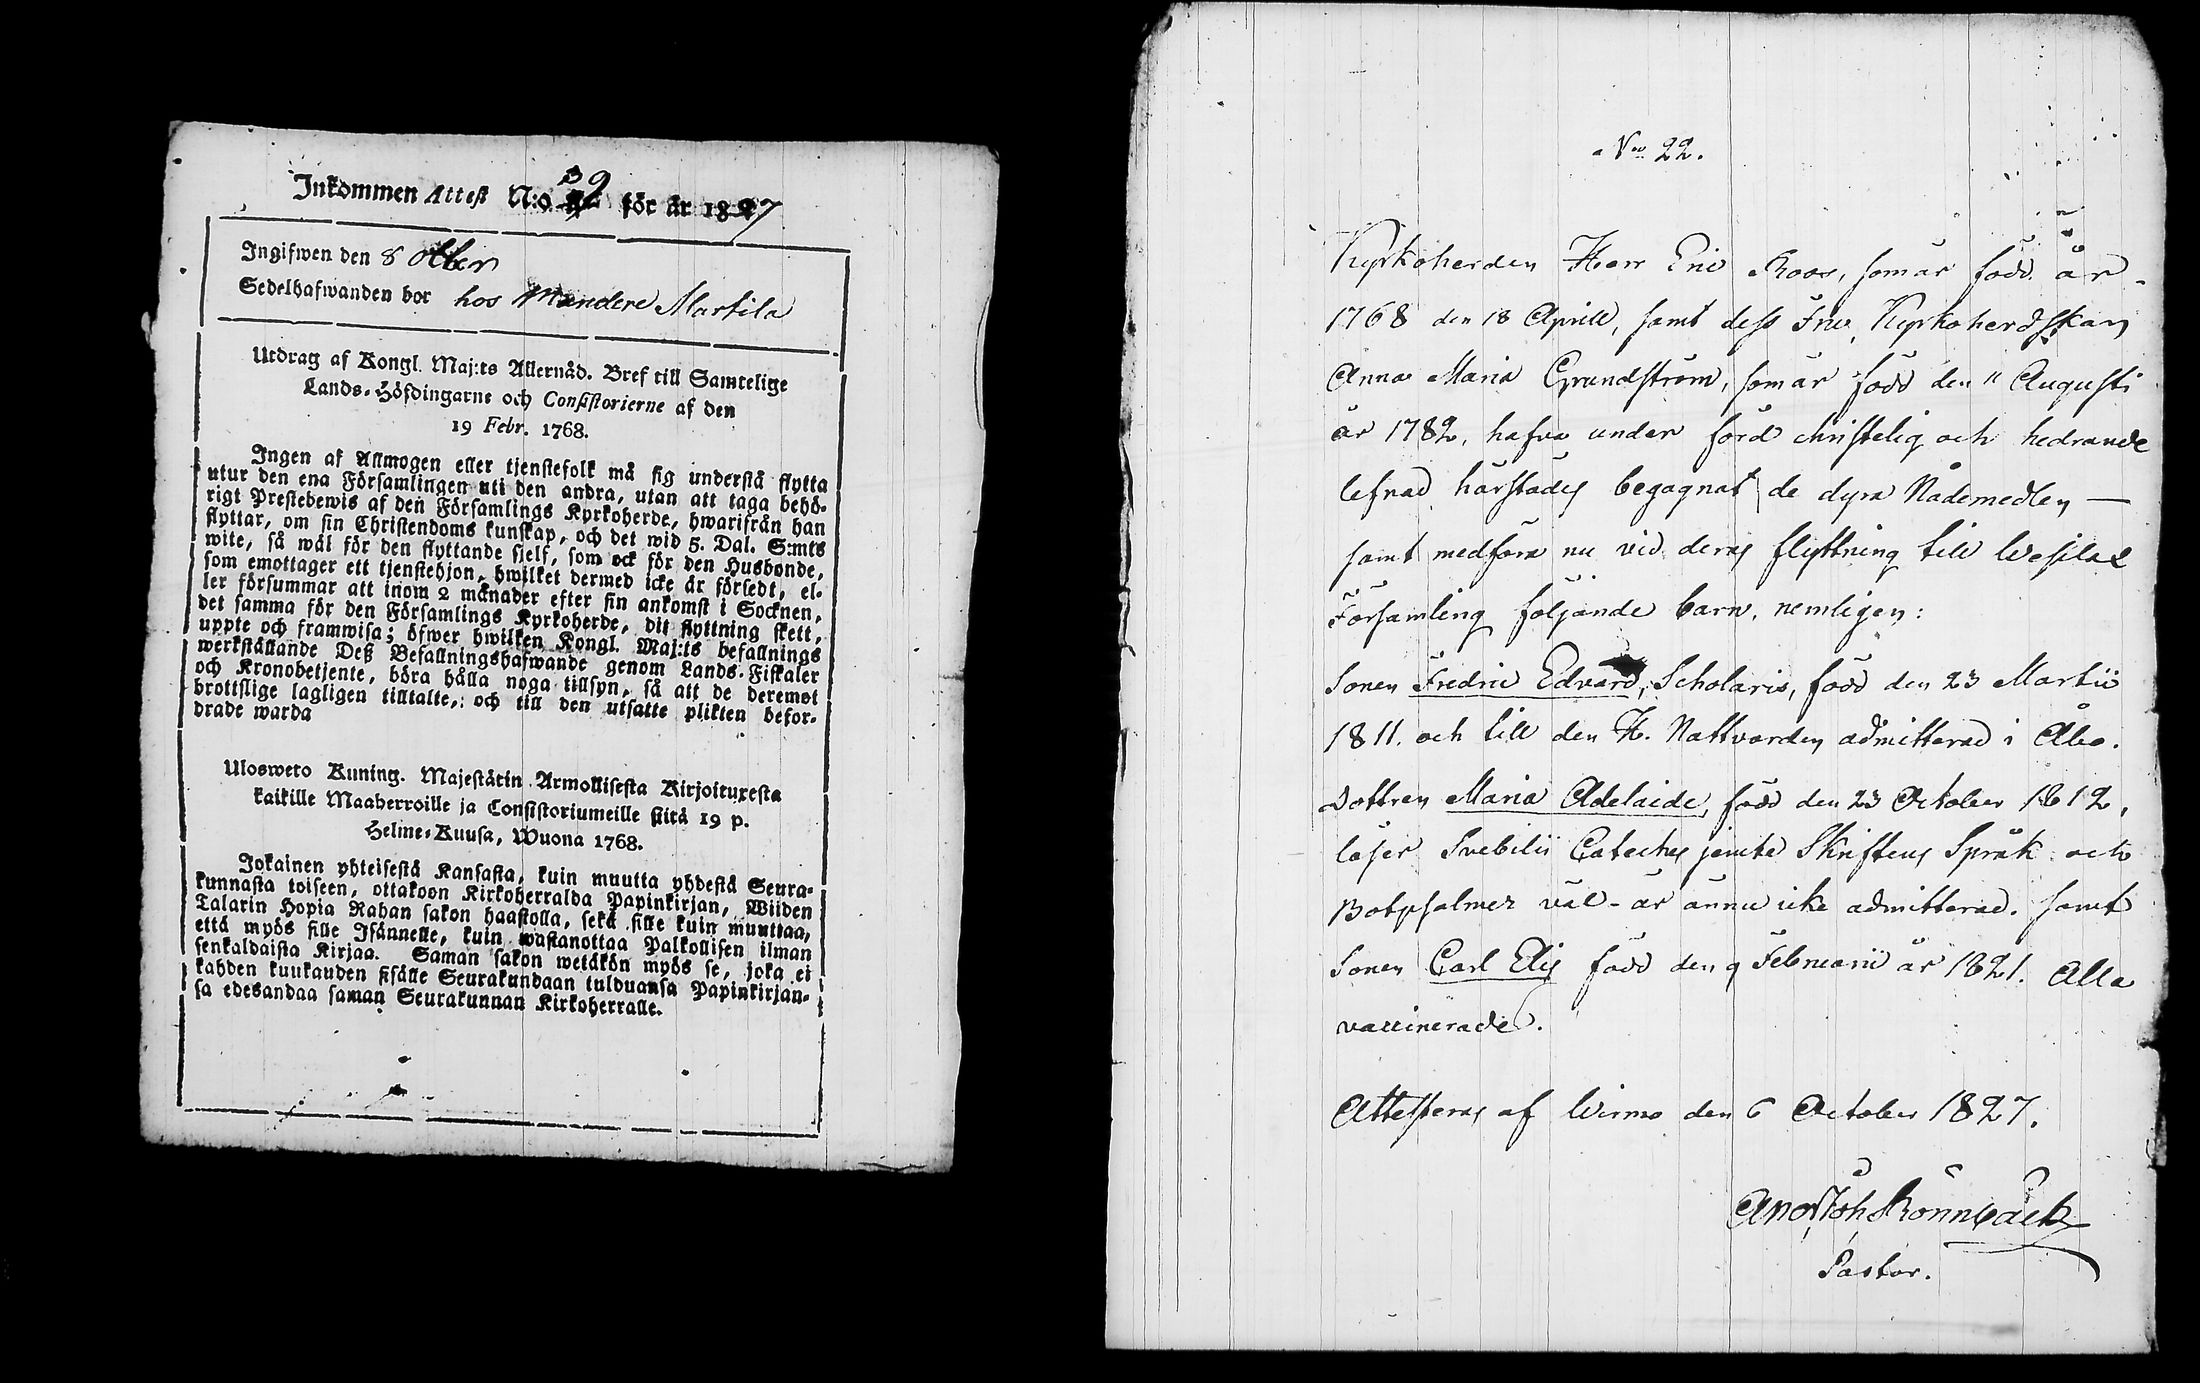 Inkommen Attest N:o 39 för år 1827
Ingifwen den 8 8tber
Sedelhafwanden bor hos Mandere Martila
Utdrag af Kongl. Maj:ts Allernåd. Bref till Samtelige
Lands-Höfdingarne och Consistorierne af den
19 Febr. 1768.
Ingen af Allmogen eller tjenstefolk må sig understå flytta
utur den ena Församlingen uti den andra, utan att taga behö-
rigt Prestebewis af den Församlings Kyrkoherde, hwarifrån han
flyttar, om sin Christendoms kunskap, och det wid 5. Dal. S:mts
wite, så wäl för den flyttande sjelf, som ock för den Husbonde,
som emottager ett tjenstehjon, hwilket dermed icke är försedt, el-
ler försummar att inom 2 månader efter sin ankomst i Socknen,
det samma för den Församlings Kyrkoherde, dit flyttning skett,
uppte och framwisa; öfwer hwilken Kongl. Maj:ts befallnings
werkställande Deß Befallningshafwande genom Lands-Fiskaler
och Kronobetjente, böra hålla noga tillsyn, så att de deremot
brottslige lagligen tilltalte, och till den utsatte plikten befor-
drade warda
Ulosweto Kuning. Majestätin Armollisesta Kirjoituxesta
kaikille Maaherroille ja Consistoriumeille siitä 19 p.
Helme-Kuusa, Wuona 1768.
Jokainen yhteisestä Kansasta, kuin muutta yhdestä Seura-
kunnasta toiseen, ottakoon Kirkoherralda Papinkirjan, Wiiden
Talarin Hopia Rahan sakon haastolla, sekä sille kuin muuttaa,
että myös sille Isännelle, kuin wastanottaa Palkollisen ilman
senkaldaista Kirjaa. Saman sakon wetäkön myös se, joka ei
kahden kuukauden sisälle Seurakundaan tulduansa Papinkirjan-
sa edesandaa saman Seurakunnan Kirkoherralle.
No 22.
Kyrkoherden Herr Eric Roos, som är född år
1768 den 18 Aprill, samt dess Fru, Kyrkoherdskan
Anna Maria Grundström, som är född den 11 Augusti
år 1782, hafva under förd christelig och hedrande
lefnad härstädes begagnat de dyra Nådemedlen —
samt medföra nu vid deras flyttning till Wesilax
Församling följande barn, nemligen:
Sonen Fredric Edvard, Scholaris, född den 23 Martii
1811. och till den H. Nattvarden admitterad i Åbo.
Dottren Maria Adelaide, född den 23 October 1812,
läser Svebilii Cateches jemte Skriftens Språk och
Botpsalmer väl - är ännu icke admitterad. samt
Sonen Carl Elis född den 9 Februarii år 1821. Alla
vaccinerade.
Attesteras af Wirmo den 6 October 1827.
And Joh Rönnbäck
Pastor.